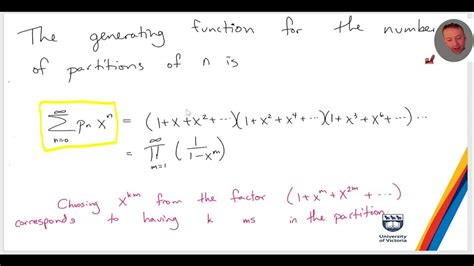 The generating function for the number
of partitions of n is
∑_{n=0}^{∞} p_n x^n = (1+x+x^2+⋯)(1+x^2+x^4+⋯)(1+x^3+x^6+⋯)⋯
= ∏_{m=1}^{∞} (1/(1-x^m))
Choosing x^{km} from the factor (1+x^m+x^{2m}+⋯)
corresponds to having k ms in the partition.
University
of Victoria